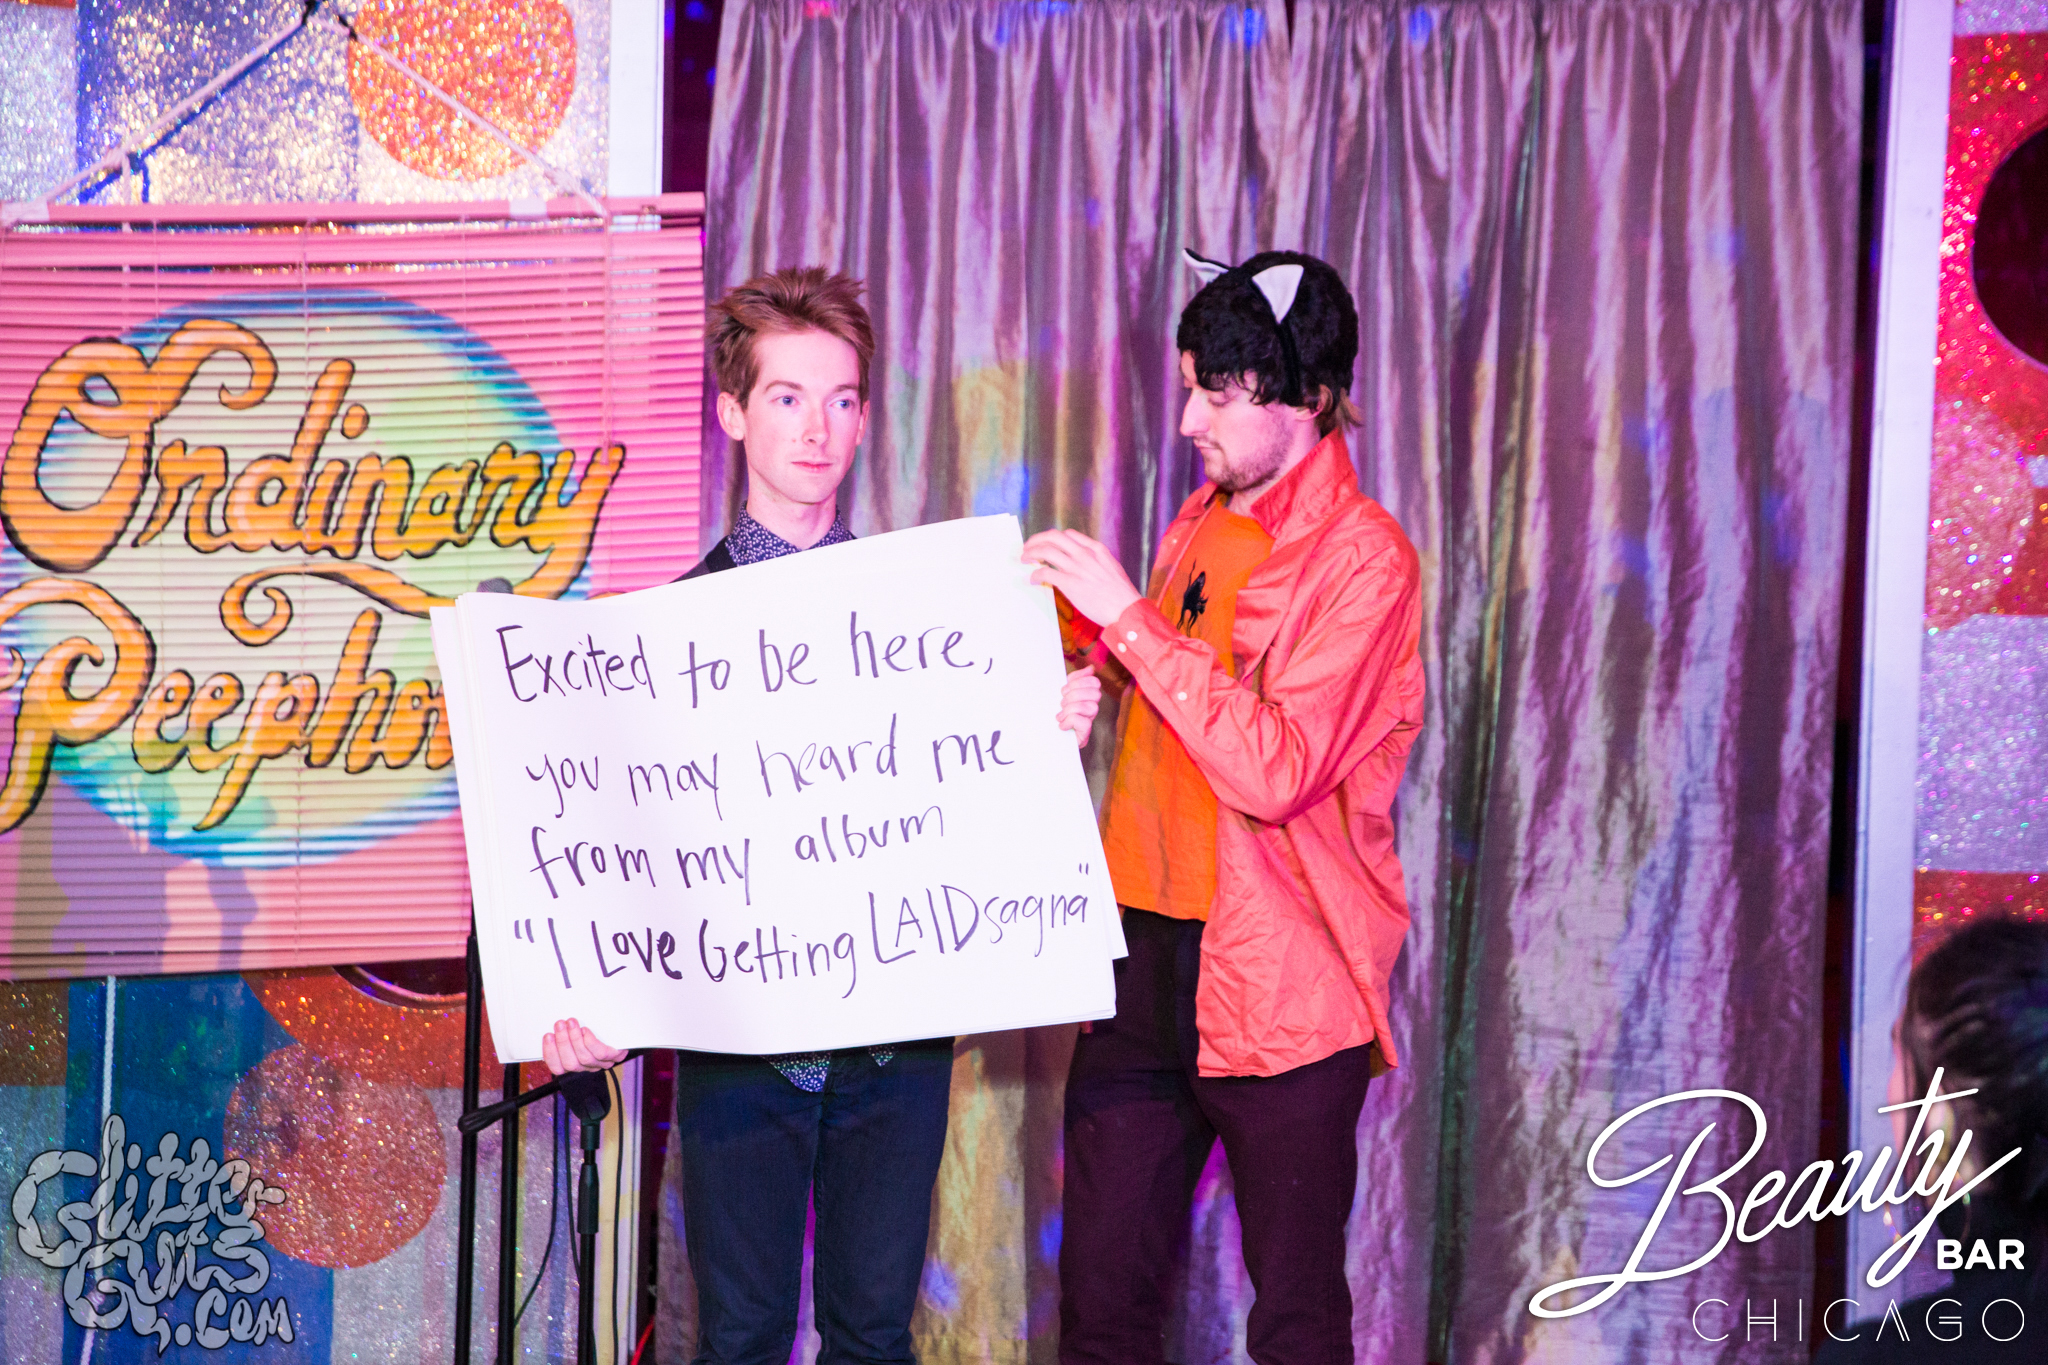 Ordinary
Peepho
Excited to be here,
you may heard me
from my album
"I Love Getting LAIDsagna"
Glitter
Guts
.com
Beauty
BAR
CHICAGO